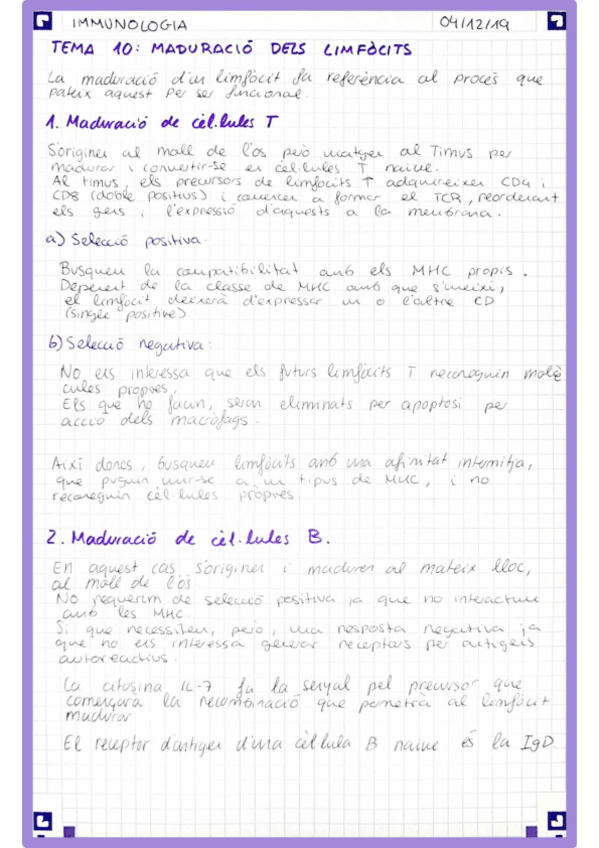 IMMUNOLOGIA 04/12/19
TEMA 10: MADURACIÓ DELS LIMFÒCITS
La maduració d'un limfòcit fa referència al procés que
pateix aquest per ser funcional.
1. Maduració de cèl·lules T
S'originen al moll de l'os però migren al Timus per
madurar i convertir-se en cèl·lules T naive.
Al timus, els precursors de limfòcits T adquireixen CD4 i
CD8 (doble positius) i comencen a formar el TCR, reordenant
els gens i l'expressió d'aquests a la membrana.
a) Selecció positiva.
Busquem la compatibilitat amb els MHC propis.
Depenent de la classe de MHC amb que s'uneixi,
el limfòcit deixarà d'expressar un o l'altre CD
(single positive)
b) Selecció negativa:
No ens interessa que els futurs limfòcits T reconeguin molè
cules pròpies.
Els que ho facin, seran eliminats per apoptosi per
acció dels macròfags.
Així doncs, busquem limfòcits amb una afinitat intermitja,
que puguin unir-se a un tipus de MHC, i no
reconeguin cèl·lules pròpies.
2. Maduració de cèl·lules B.
En aquest cas s'originen i maduren al mateix lloc,
al moll de l'os.
No requerim de selecció positiva ja que no interactuen
amb les MHC.
Si que necessiten, però, una resposta negativa ja
que no ens interessa generar receptors per antigens
autoreactius.
La citosina IL-7 fa la senyal pel precursor que
començarà la recombinació que permetrà al limfòcit
madurar
El receptor d'antigen d'una cèl·lula B naive és la IgD